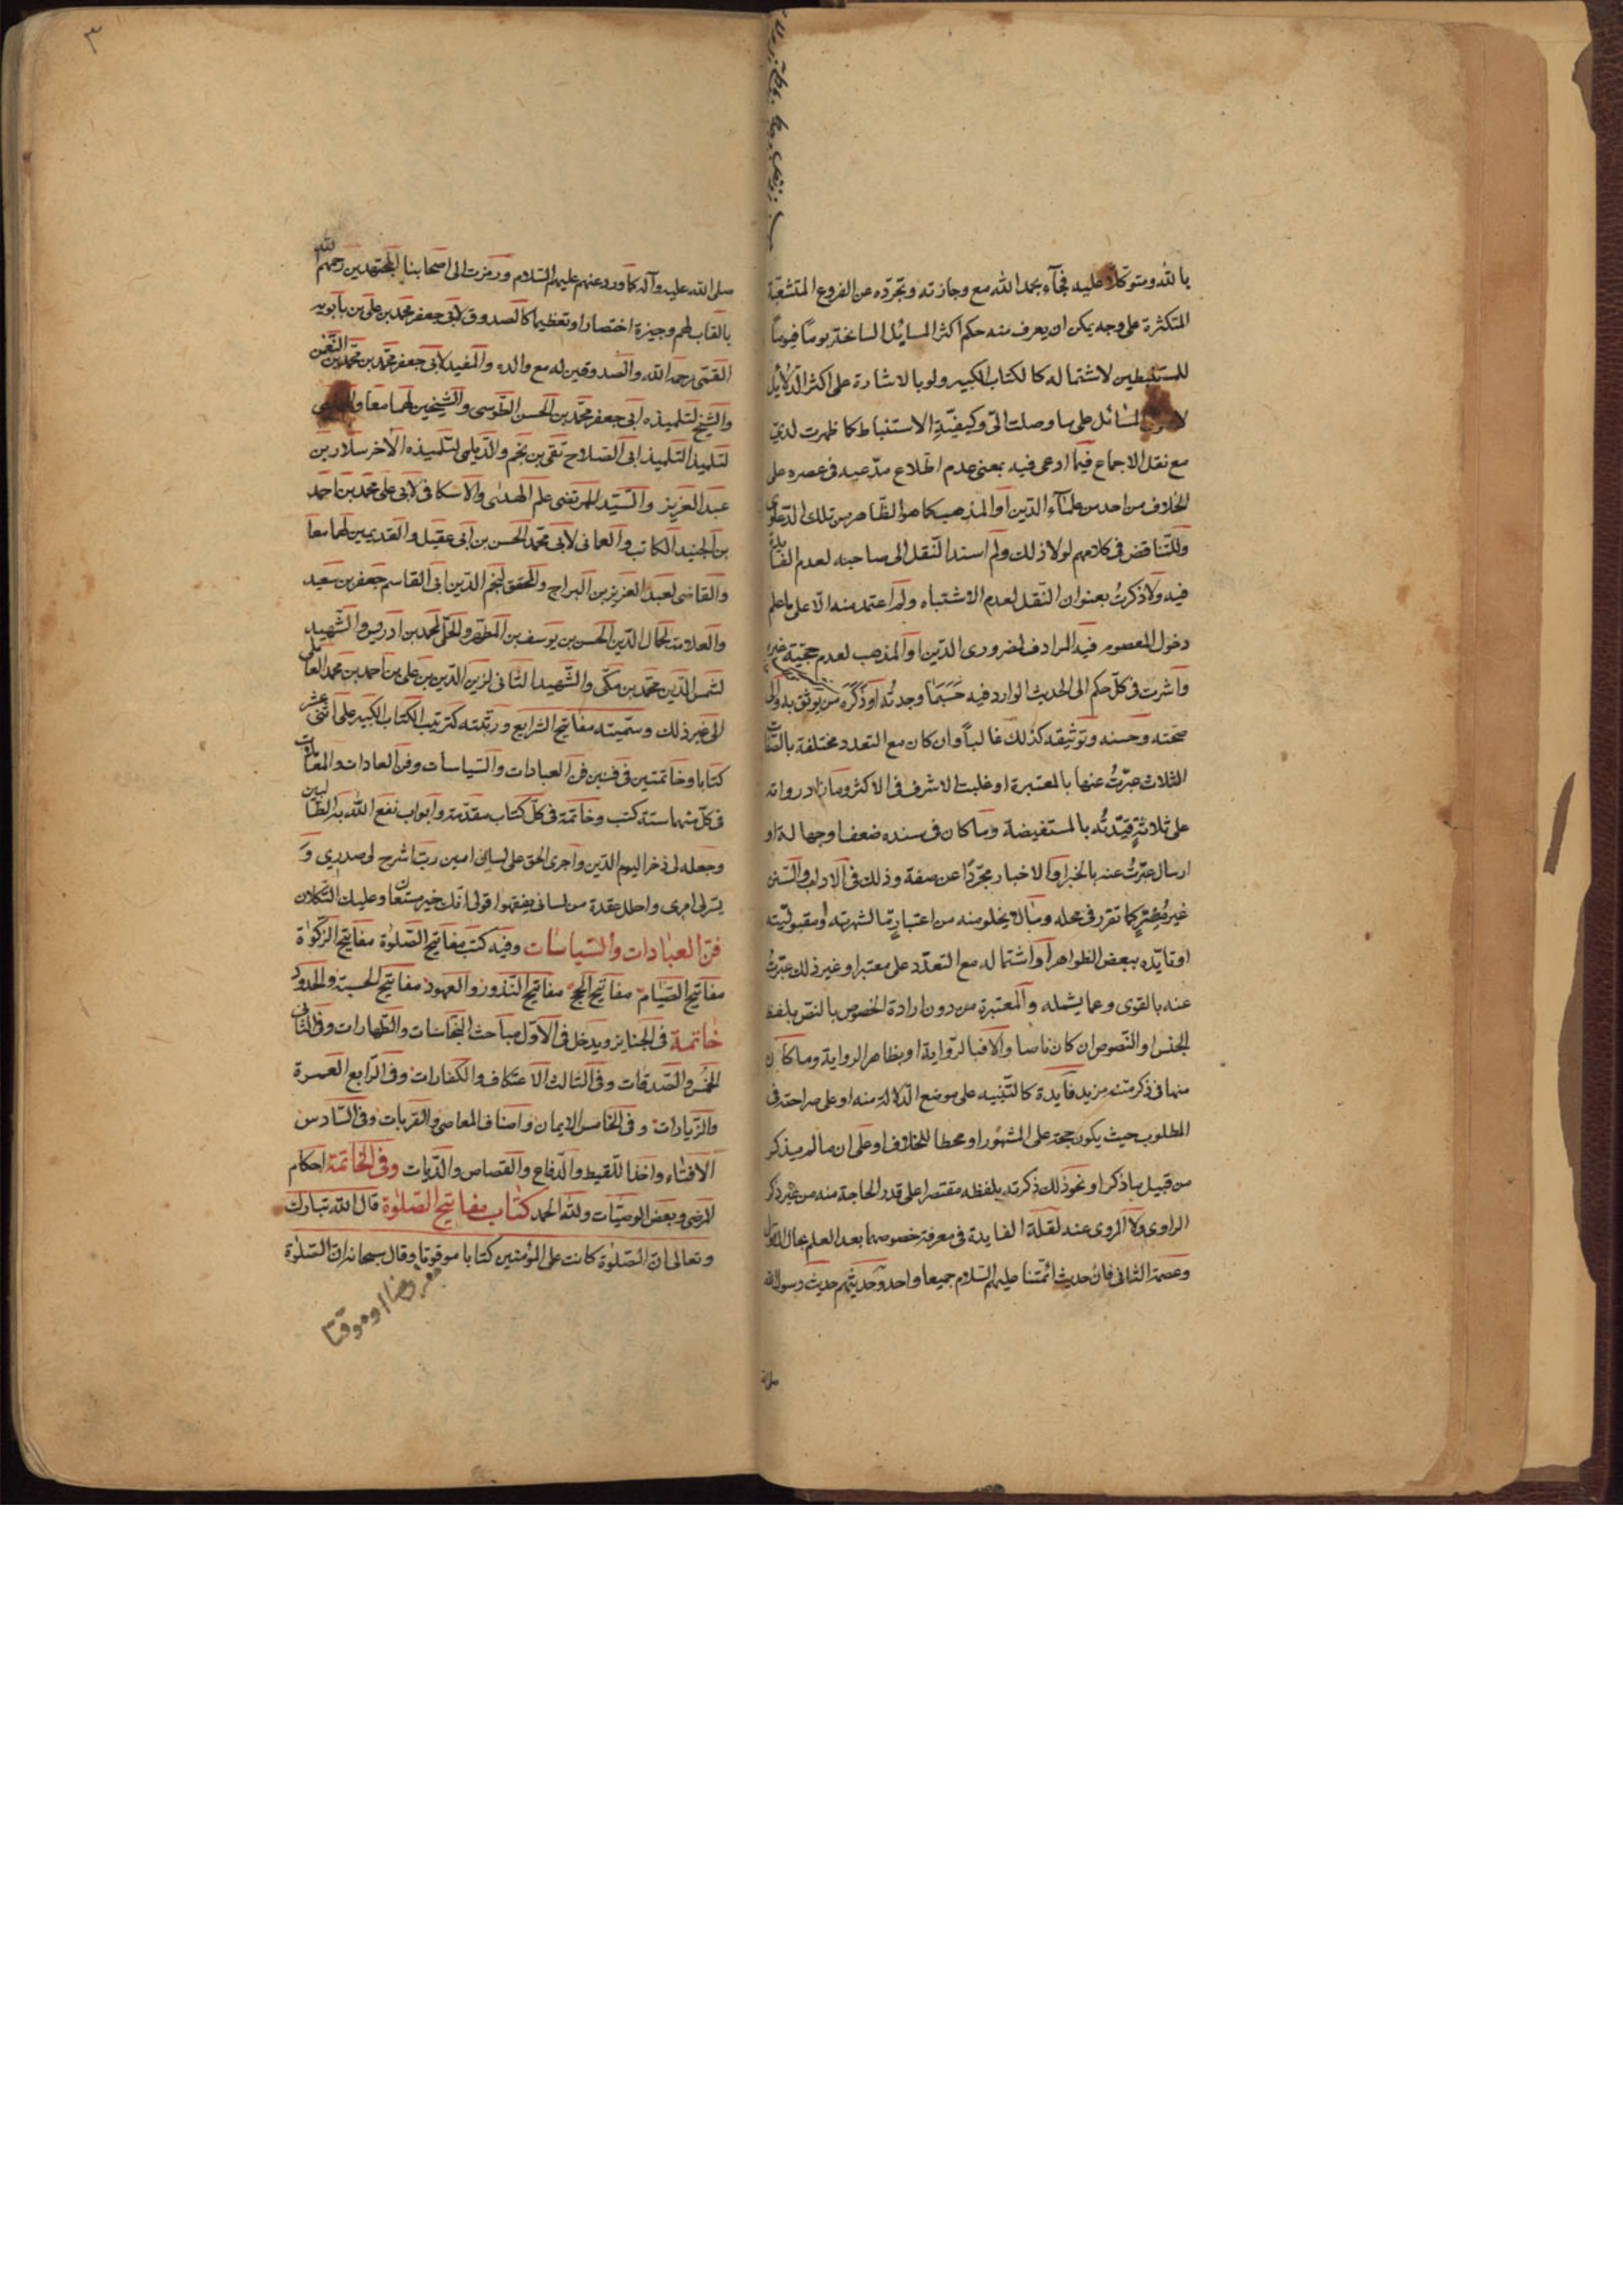 بالله ومتوكلا عليه فجآء بحمد الله مع وجازته وتجرّده عن الفروع المتشعّبة
المتكثرة على وجه يمكن ان يعرف منه حكم اكثر المسائل السانحة يوماً فيوماً
للمستنبطين لاشتماله كالكتاب الكبير ولو بالاشارة على اكثر الدلائل
المسائل على ما وصلت الىّ وكيفيّة الاستنباط كما ظهرت لدىّ
مع نقل الاجماع فيما ادعى فيه بمعنى عدم اطلاع مدّعيه فى عصره على
الخلاف من احد من علمآء الدين او المذهب كما هو الظاهر من تلك الدعاوى
وللتناقض فى كلامهم لولا ذلك ولم اسند النّقل الى صاحبه لعدم الفائدة
فيه ولا ذكرتُ بعنوان النقل لعدم الاشتباه ولم اعتمد منه الّا على ما علم
دخول المعصوم فيه المرادف لضرورى الدّين او المذهب لعدم حجّية غيره
واشرت فى كلّ حكم الى الحديث الوارد فيه حَسَبَما وجدتُه او ذَكَرَه من يوثق به والى
صحّته وحسنه وتوثيقه كذلك غالباً وان كان مع التعدد مختلفة بالصفات
الثلاث عبّرتُ عنها بالمعتبرة او غلبت الاشرف فى الاكثر وما زاد رواته
على ثلاثةٍ قيّدتُه بالمستفيضة وما كان فى سنده ضعف او جهالة او
ارسال عبّرتُ عنه بالخبر او الاخبار مجرّدًا عن صفة وذلك فى الآداب والسّنن
غير مُضِرٍّ كما تقرر فى محله ومّا لا يخلو منه من اعتبارٍ مّا لشهرته او مقبوليّته
او تايّده ببعض الظواهر او اشتماله مع التعدّد على معتبر او غير ذلك عبّرتُ
عنه بالقوى وعما يشمله والمعتبرة من دون ارادة الخصوص بالنصّ بلفظ
الجنس او النّصوص ان كان ناصا والّا فبالرّواية او بظاهر الرواية وما كان
منها فى ذكر متنه مزيد فآيدة كالتّنبيه على موضع الدّلالة منه او على صراحته فى
المطلوب حيث يكون حجّة على المشهور او محطا للخلاف او على ان ما لم يذكر
من قبيل ما ذكر او نحو ذلك ذكرته بلفظه مقتصرا على قدر الحاجة منه من غير ذكر
الراوى ولا المروى عنه لقلّة الفايدة فى معرفة خصوصهما بعد العلم بحال الاوّل
وعصمة الثانى فان حديث ائمّتنا عليهم السّلام جميعا واحد وحديثهم حديث رسول الله
صلى الله عليه وآله كما ورد عنهم عليهم السّلام ورمزت الى اصحابنا المجتهدين رحمهم الله
بالقاب لهم وجيزة اختصارا وتعظيما كالصدوق لابى جعفر محمد بن على بن بابويه
القمّى رحمه الله والصدوقين له مع والده والمفيد لابى جعفر محمّد بن محمّد بن النّعمن
والشّيخ لتلميذه ابى جعفر محمّد بن الحسن الطّوسى والشّيخين لهما معا
لتلميذ التلميذ ابى الصّلاح تقى بن نجم والدّيلمى لتلميذه الآخر سلار بن
عبد العزيز والسّيّد المرتضى علم الهدىٰ والاسكافى لابى على محمد بن احمد
بن الجنيد الكاتب والعمانى لابى محمّد الحسن بن ابى عقيل والقديمين لهما معا
والقاضى لعبد العزيز بن البراج والمحقق لنجم الدّين ابى القاسم جعفر بن سعيد
والعلامة لجمال الدّين الحسن بن يوسف بن المطهّر والحلّى لمحمد بن ادريس والشّهيد
لشمس الدّين محمّد بن مكّى والشّهيد الثانى لزين الدّين بن على بن احمد بن محمد العاملى
الى غير ذلك وسمّيته مفاتيح الشرايع ورتّبته كترتيب الكتاب الكبير على اثنى عشر
كتابا وخاتمتين فى فنين فن العبادات والسّياسات وفن العادات والمعاملات
فى كلّ منهما ستة كتب وخاتمة فى كلّ كتاب مقدّمة وابواب نفع الله به الطالبين
وجعله لى ذخرا ليوم الدّين واجرى الحق على لسانى امين ربّ اشرح لى صدرى و
يسّر لى امرى واحلل عقدة من لسانى يفقهوا قولى انّك خير مستعان وعليك التّكلان
فنّ العبادات والسّياسات وفيه كتب مفاتيح الصّلوٰة مفاتيح الزّكوٰة
مفاتيح الصّيام مفاتيح الحج مفاتيح النّذور والعهود مفاتيح الحسبة والحدود
خاتمة فى الجنايز ويدخل فى الاوّل مباحث النّجاسات والطّهارات وفى الثّانى
الخمس والصّدقات وفى الثالث الاعتكاف والكفارات وفى الرّابع العمرة
والزّيارات وفى الخامس الايمان واصناف المعاصى والقربات وفى السّادس
الافتاء واخذ اللّقيط والدّفاع والقصاص والدّيات وفى الخاتمة احكام
المرضى وبعض الوصيّات ولله الحمد كتاب مفاتيح الصّلوٰة قال الله تبارك
وتعالى ان الصّلوٰة كانت على المؤمنين كتابا موقوتا وقال سبحانه ان الصّلوٰة